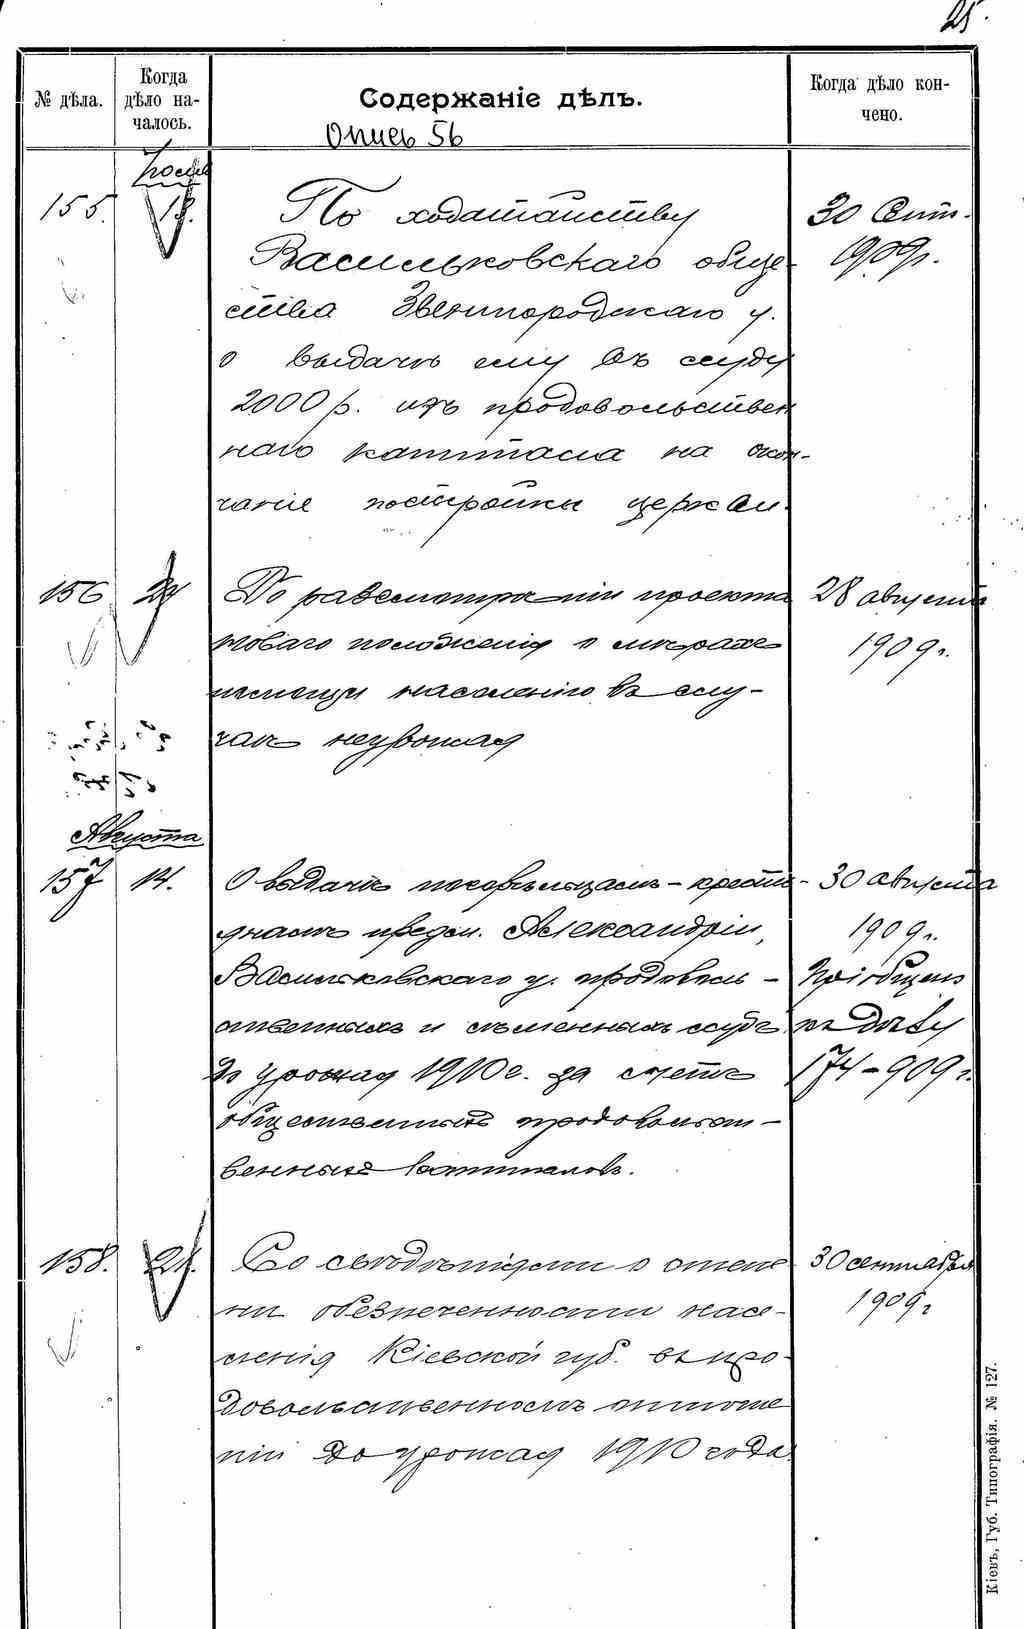 25.
№ дѣла.
Когда
дѣло на-
чалось.
Содержаніе дѣлъ.
Когда дѣло кон-
чено.
Опись 56
155.
По ходатайству
Васильковскаго обще-
ства Звенигородскаго у.
о выдачѣ ему въ ссуду
2000 р. изъ продовольствен
наго капитала на окон-
чаніе постройки церкви.
30 Сент.
1909г.
156
24
По разсмотрѣніи проекта
новаго положенія о мѣрахъ
помощи населенію въ слу-
чаѣ неурожая
28 августа
1909г.
Августа
157
14.
О выдачѣ погорѣльцамъ - кресть-
янамъ предм. Александріи,
Васильковскаго у. продоволь-
ственныхъ и сѣменныхъ ссудъ
до урожая 1910 г. за счетъ
общественныхъ продовольст-
венныхъ капиталовъ.
30 августа
1909г.
Пріобщено
къ дѣлу
174-909г.
158.
21.
Со свѣдѣніями о степе
ни обезпеченности насе-
ленія Кіевской губ. въ про-
довольственномъ отноше
ніи до урожая 1910 года.
30 сентября
1909г
Кіевъ, Губ. Типографія. № 127.